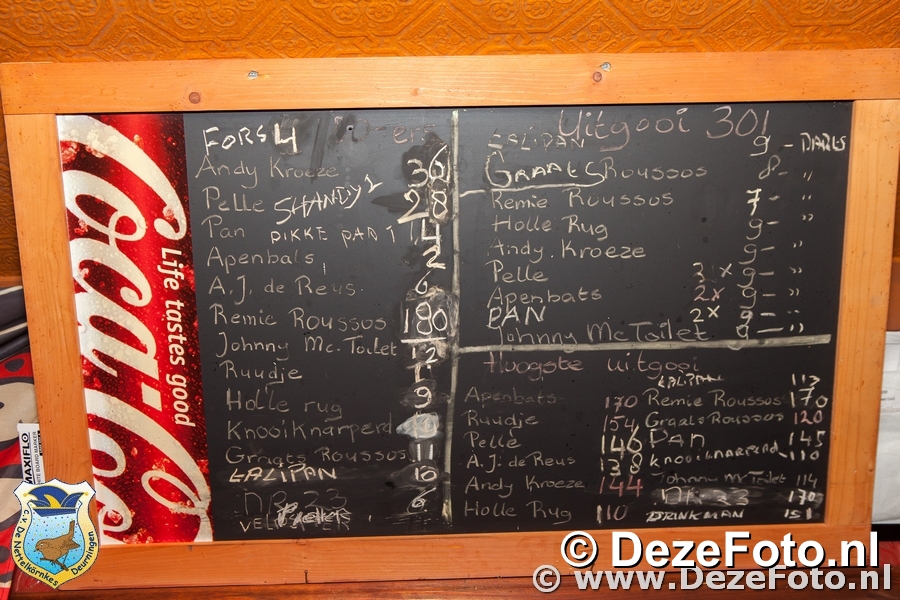 Coca-Cola
Life tastes good
FORS 4
Andy Kroeze 36
Pelle SHANDY 1 28
Pan DIKKE PAN 1 4
Apenbals 2
A.J. de Reus 6
Remie Roussos 180
Johnny Mc.Toilet 12
Ruudje
Holle rug 9
KnooiKnarperd
Graats Roussos 11
LALIPAN 10
NR. 23 6
Uitgooi 301
LALIPAN 9 - DARTS
GRAATS Roussos 8 - "
Remie Roussos 7 - "
Holle Rug 9 - "
Andy Kroeze 9 - "
Pelle 3x 9 - "
Apenbats 2x 9 - "
PAN 2x 9 - "
Johnny Mc Toilet 9 - "
Hoogste uitgooi
Apenbats 170
Ruudje 154
Pelle 146
A.J. de Reus 138
Andy Kroeze 144
Holle Rug 110
LALIPAN 113
Remie Roussos 170
Graats Roussos 120
PAN 145
KnooiKnarperd 110
Johnny Mc Toilet 114
NR. 23 170
DRINKMAN 151
MAXIFLO
WHITE BOARD MARKER
C.V. De Nettelkörnkes
Deurningen
© DezeFoto.nl
© www.DezeFoto.nl